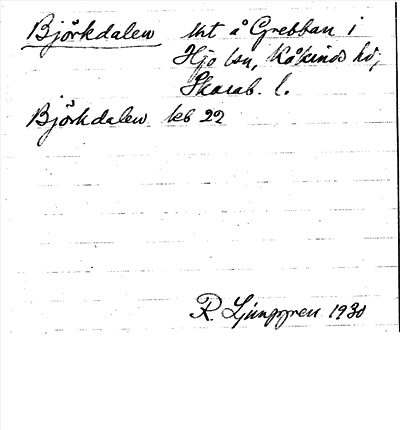 Björkdalen Urt å Grebban i
Hjo lsn, Kåkinds hd,
Skarab. l.
Björkdalen keb 22
R. Ljunggren 1930